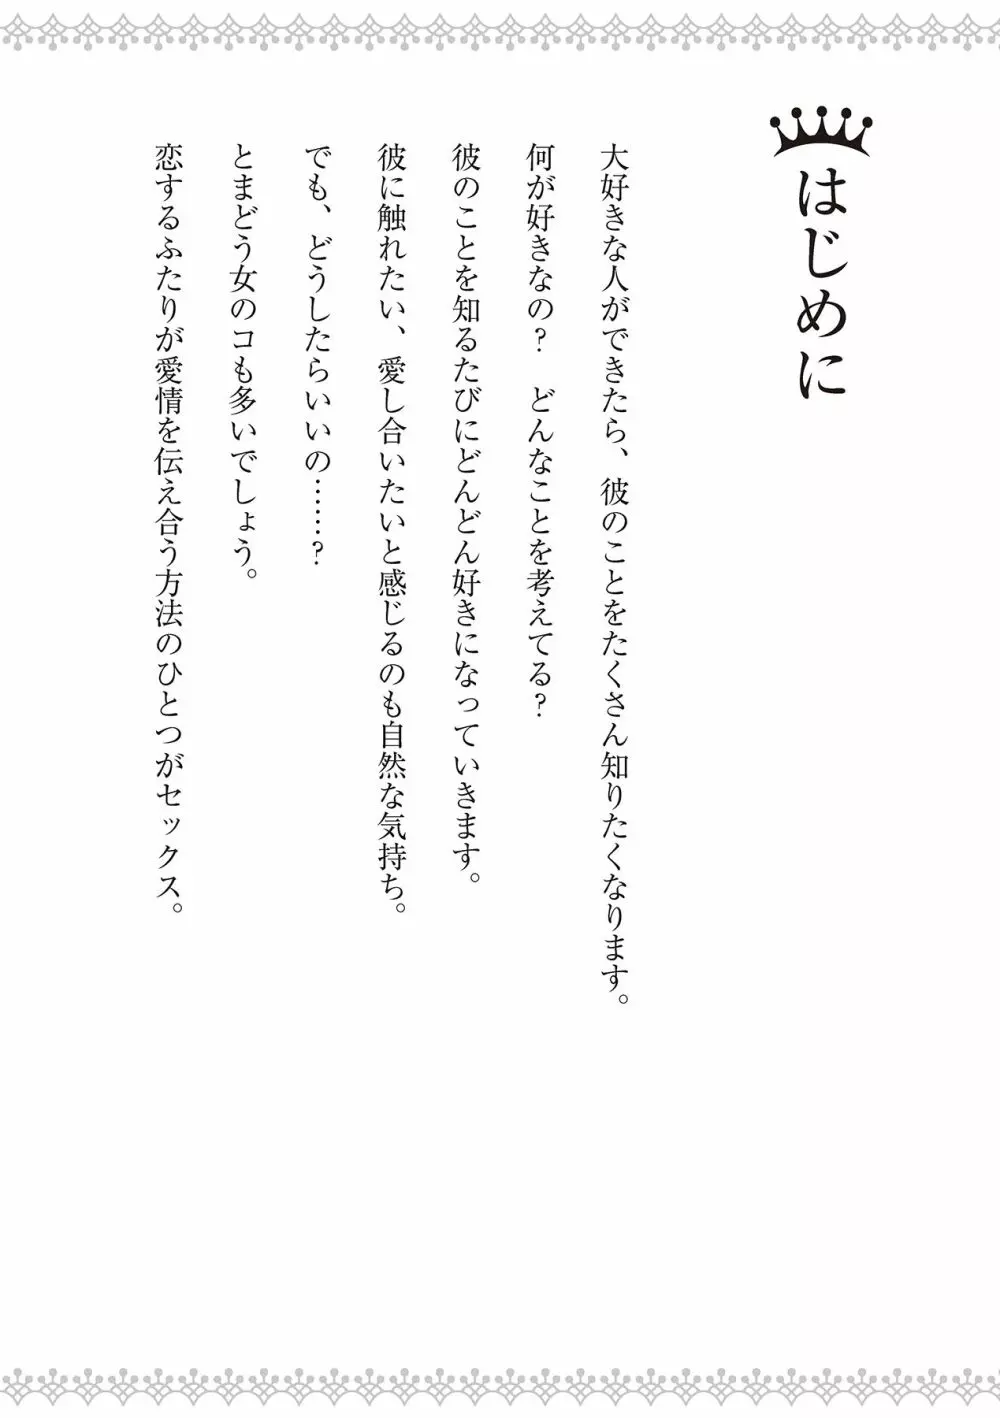 はじめに
大好きな人ができたら、彼のことをたくさん知りたくなります。
何が好きなの?　どんなことを考えてる?
彼のことを知るたびにどんどん好きになっていきます。
彼に触れたい、愛し合いたいと感じるのも自然な気持ち。
でも、どうしたらいいの……?
とまどう女のコも多いでしょう。
恋するふたりが愛情を伝え合う方法のひとつがセックス。